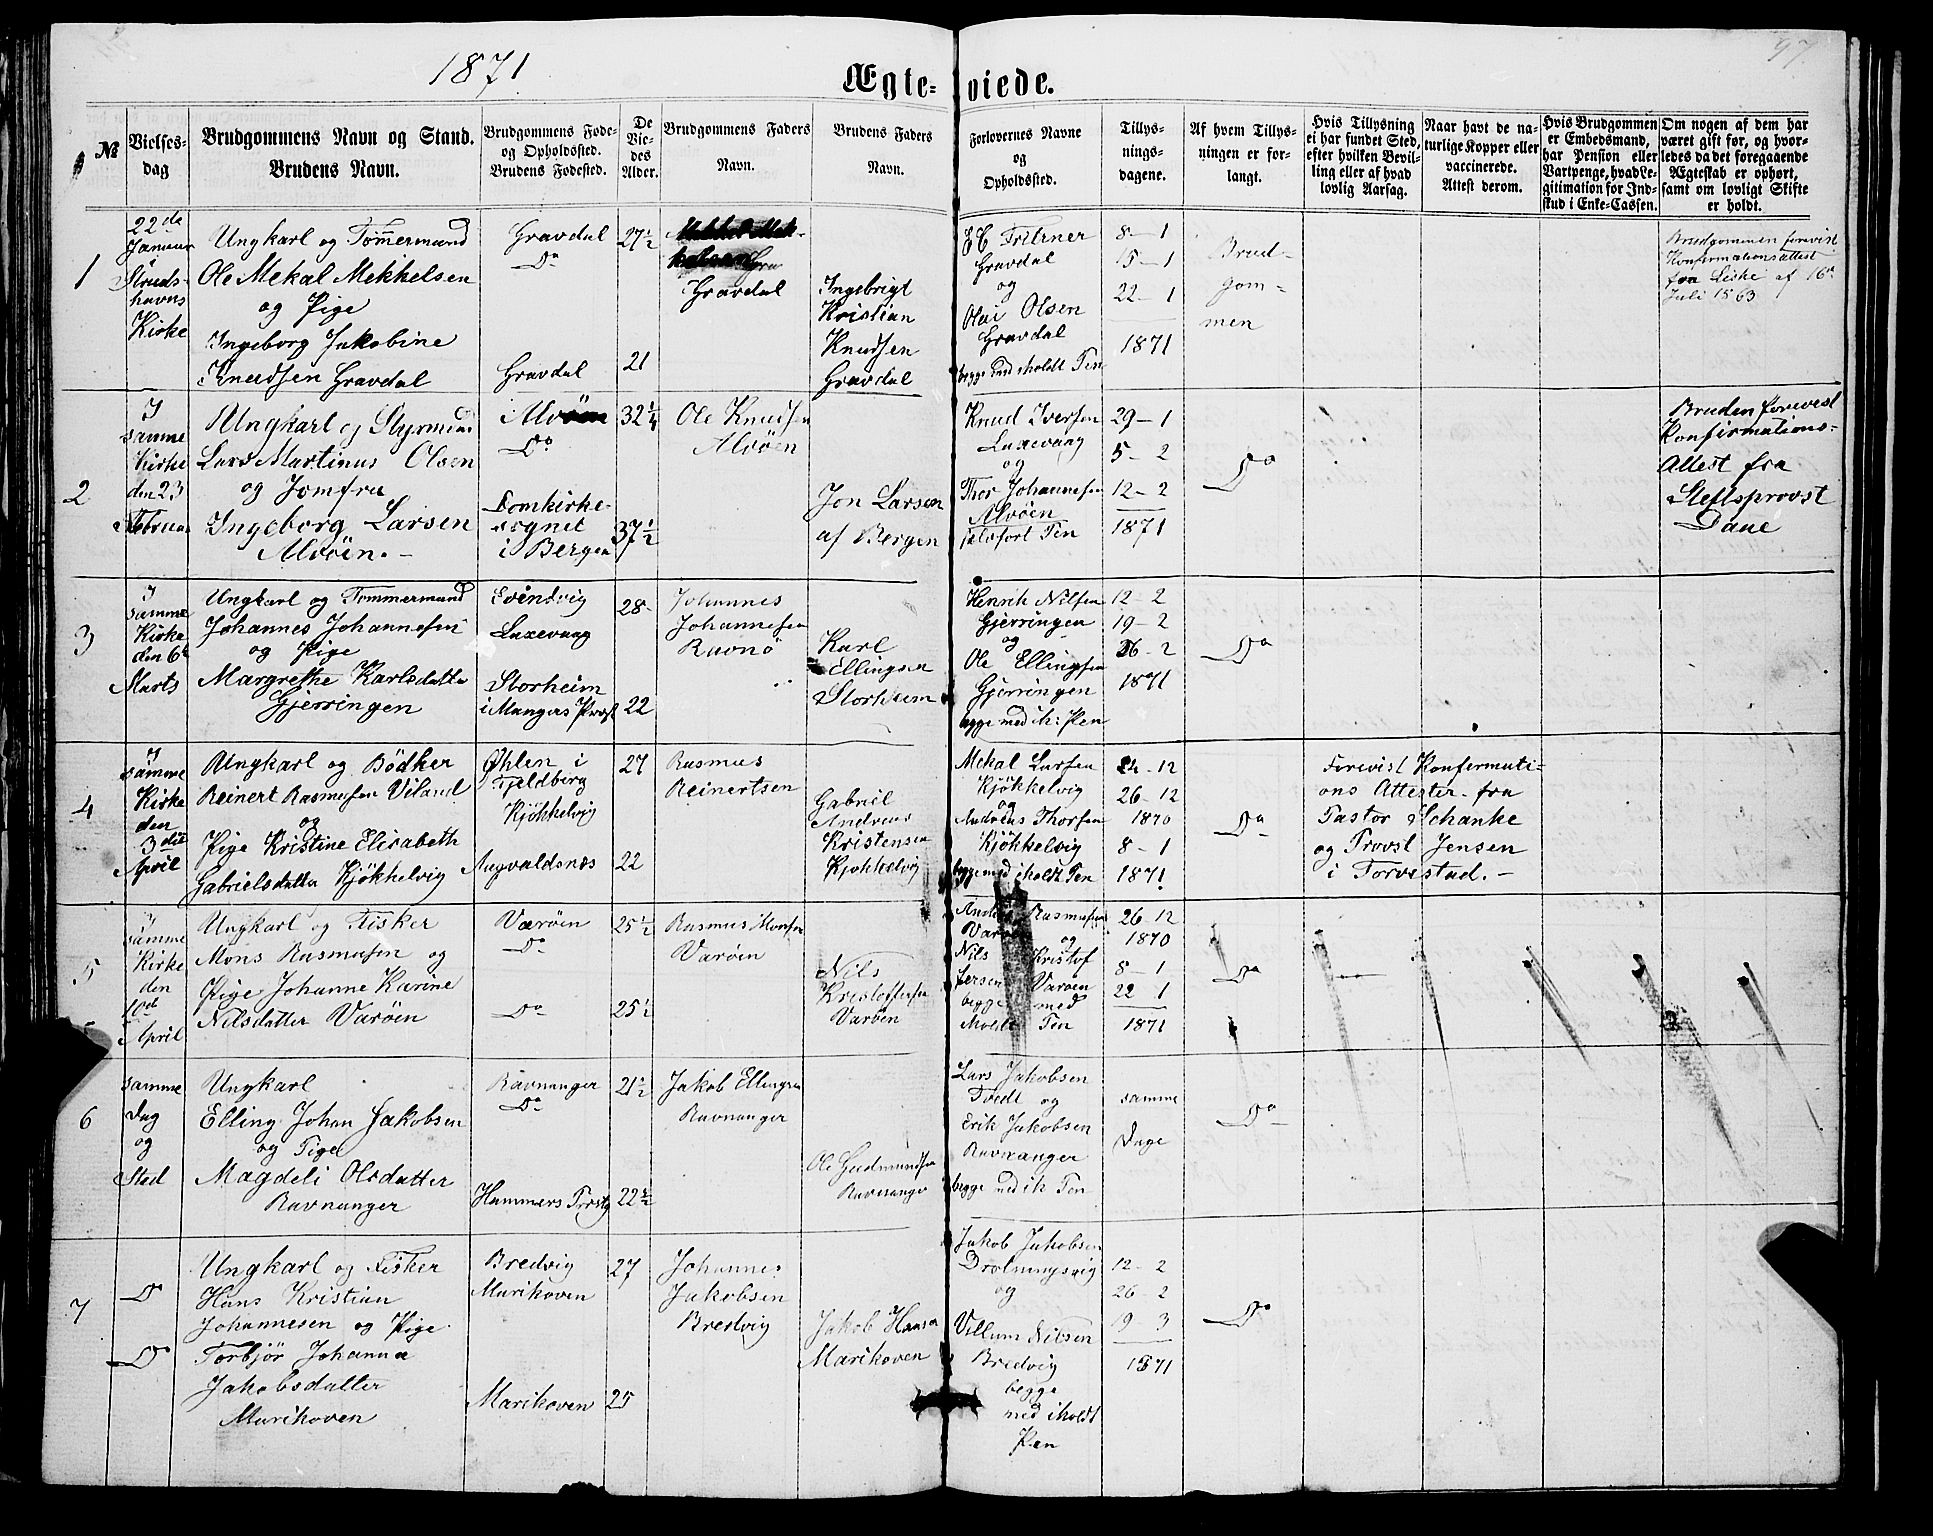 1871
97
Ægte-viede.
№
Vielses-
dag
Brudgommens Navn og Stand.
Brudens Navn.
Brudgommens Føde-
og Opholdssted.
Brudens Fødested.
De
Vie-
des
Alder.
Brudgommens Faders
Navn.
Brudens Faders
Navn.
Forlovernes Navne
og
Opholdssted.
Tillys-
nings-
dagene.
Af hvem Tillys-
ningen er for-
langt.
Hvis Tillysning
ei har fundet Sted,
efter hvilken Bevil-
ling eller af hvad
lovlig Aarsag.
Naar havt de na-
turlige Kopper eller
vaccinerede.
Attest derom.
Hvis Brudgommen
er Embedsmand,
har Pension eller
Vartpenge, hvad Le-
gitimation for Ind-
skud i Enke-Cassen.
Om nogen af dem har
været gift før, og hvor-
ledes da det foregaaende
Ægteskab er ophørt,
samt om lovligt Skifte
er holdt.
1
22de
Januar
Struds-
havns
Kirke
Ungkarl og Tømmermand
Ole Mekal Mekkelsen
og Pige
Ingeborg Jakobine
Knudsen Gravdal
Gravdal
Do
Gravdal
27½
21
Gravdal
Ingebrigt
Kristian
Knudsen
Gravdal
Gravdal
og
Olai Olsen
Gravdal
begge med iholdt Pen
8 - 1
15 - 1
22 - 1
1871
Brud-
gom-
men
Brudgommen forevist
Konfirmationsattest
fra af 16de
Juli 1863
2
I
samme
Kirke
den 23
Februar
Ungkarl og Styrmand
Lars Martinus Olsen
og Jomfru
Ingeborg Larsen
Alvöen. -
Alvöen
Do
Domkirke-
sognet
i Bergen
32¼
37½
Ole Knudsen
Alvöen
Jon Larsen
af Bergen
Knud Iversen
Laxevaag
og
Thor Johannesen
Alvöen
Pen
29 - 1
5 - 2
12 - 2
1871
Do
Bruden forevist
Konfirmations-
Attest fra
Stiftsprovst
Daae
3
I
samme
Kirke
den 6te
Marts
Ungkarl og Tømmermand
Johannes Johannesen
og Pige
Margrethe Karlsdatter
Gjerringen
Evindvig
Laxevaag
Storheim
i Mangers Præst
28
22
Johannes
Johannesen
Ravnö
Karl
Ellingsen
Storheim
Henrik Nilsen
Gjerringen
og
Ole Ellingsen
Gjerringen
begge med ih: Pen
12 - 2
19 - 2
26 - 2
1871
Do
4
I
samme
Kirke
den
3die
April
Ungkarl og Bödker
Reinert Rasmusen Viland
og
Pige Kristine Elisabeth
Gabrielsdatter Kjökkelvig
Øhlen i
Fjeldberg
Kjökkelvig
Augvaldsnæs
27
22
Rasmus
Reinertsen
Gabriel
Andreas
Kristensen
Kjökkelvig
Mekal Larsen
Kjökkelvig
og
Andreas Thorsen
Kjökkelvig
begge med iholdt Pen
24 - 12
26 - 12
1870
8 - 1
1871
Do
Forevist Konfermati-
ons Attester fra
Pastor Schanke
og Provst Jensen
i Torvestad. -
5
I
samme
Kirke
den
10de
April
Ungkarl og Fisker
Mons Rasmusen og
Pige Johanne Karine
Nilsdatter Varöen
Varöen
Do
Do
25½
25½
Rasmus Monsen
Varöen
Nils
Kristoffersen
Varöen
Rasmusen
Varöen og
Nils Kristof
fersen Varöen
begge med
iholdt Pen
26 - 12
1870
8 - 1
22 1
1871
Do
6
samme
Dag
og
Sted
Ungkarl
Elling Johan Jakobsen
og Pige
Magdeli Olsdatter
Ravnanger
Ravnanger
Do
Hammers Præstg
21½
22½
Jakob Ellingsen
Ravnanger
Ole Gudmundsen
Ravnanger
Lars Jakobsen
Tvedt og
Erik Jakobsen
Ravnanger
begge med ih Pen
samme
Dage
Do
7
Do
Do
Ungkarl og Fisker
Hans Kristian
Johannesen og Pige
Torbjör Johanna
Jakobsdatter
Marikoven
Bredvig
Marikoven
Marikoven
27
25
Johannes
Jakobsen
Bredvig
Jakob Hansen
Marikoven
Jakob Jakobsen
Drotningsvig
og
Villum Nilsen
Bredvig
begge
med iholdt
Pen
12 - 2
26 - 2
19 3
1871
Do